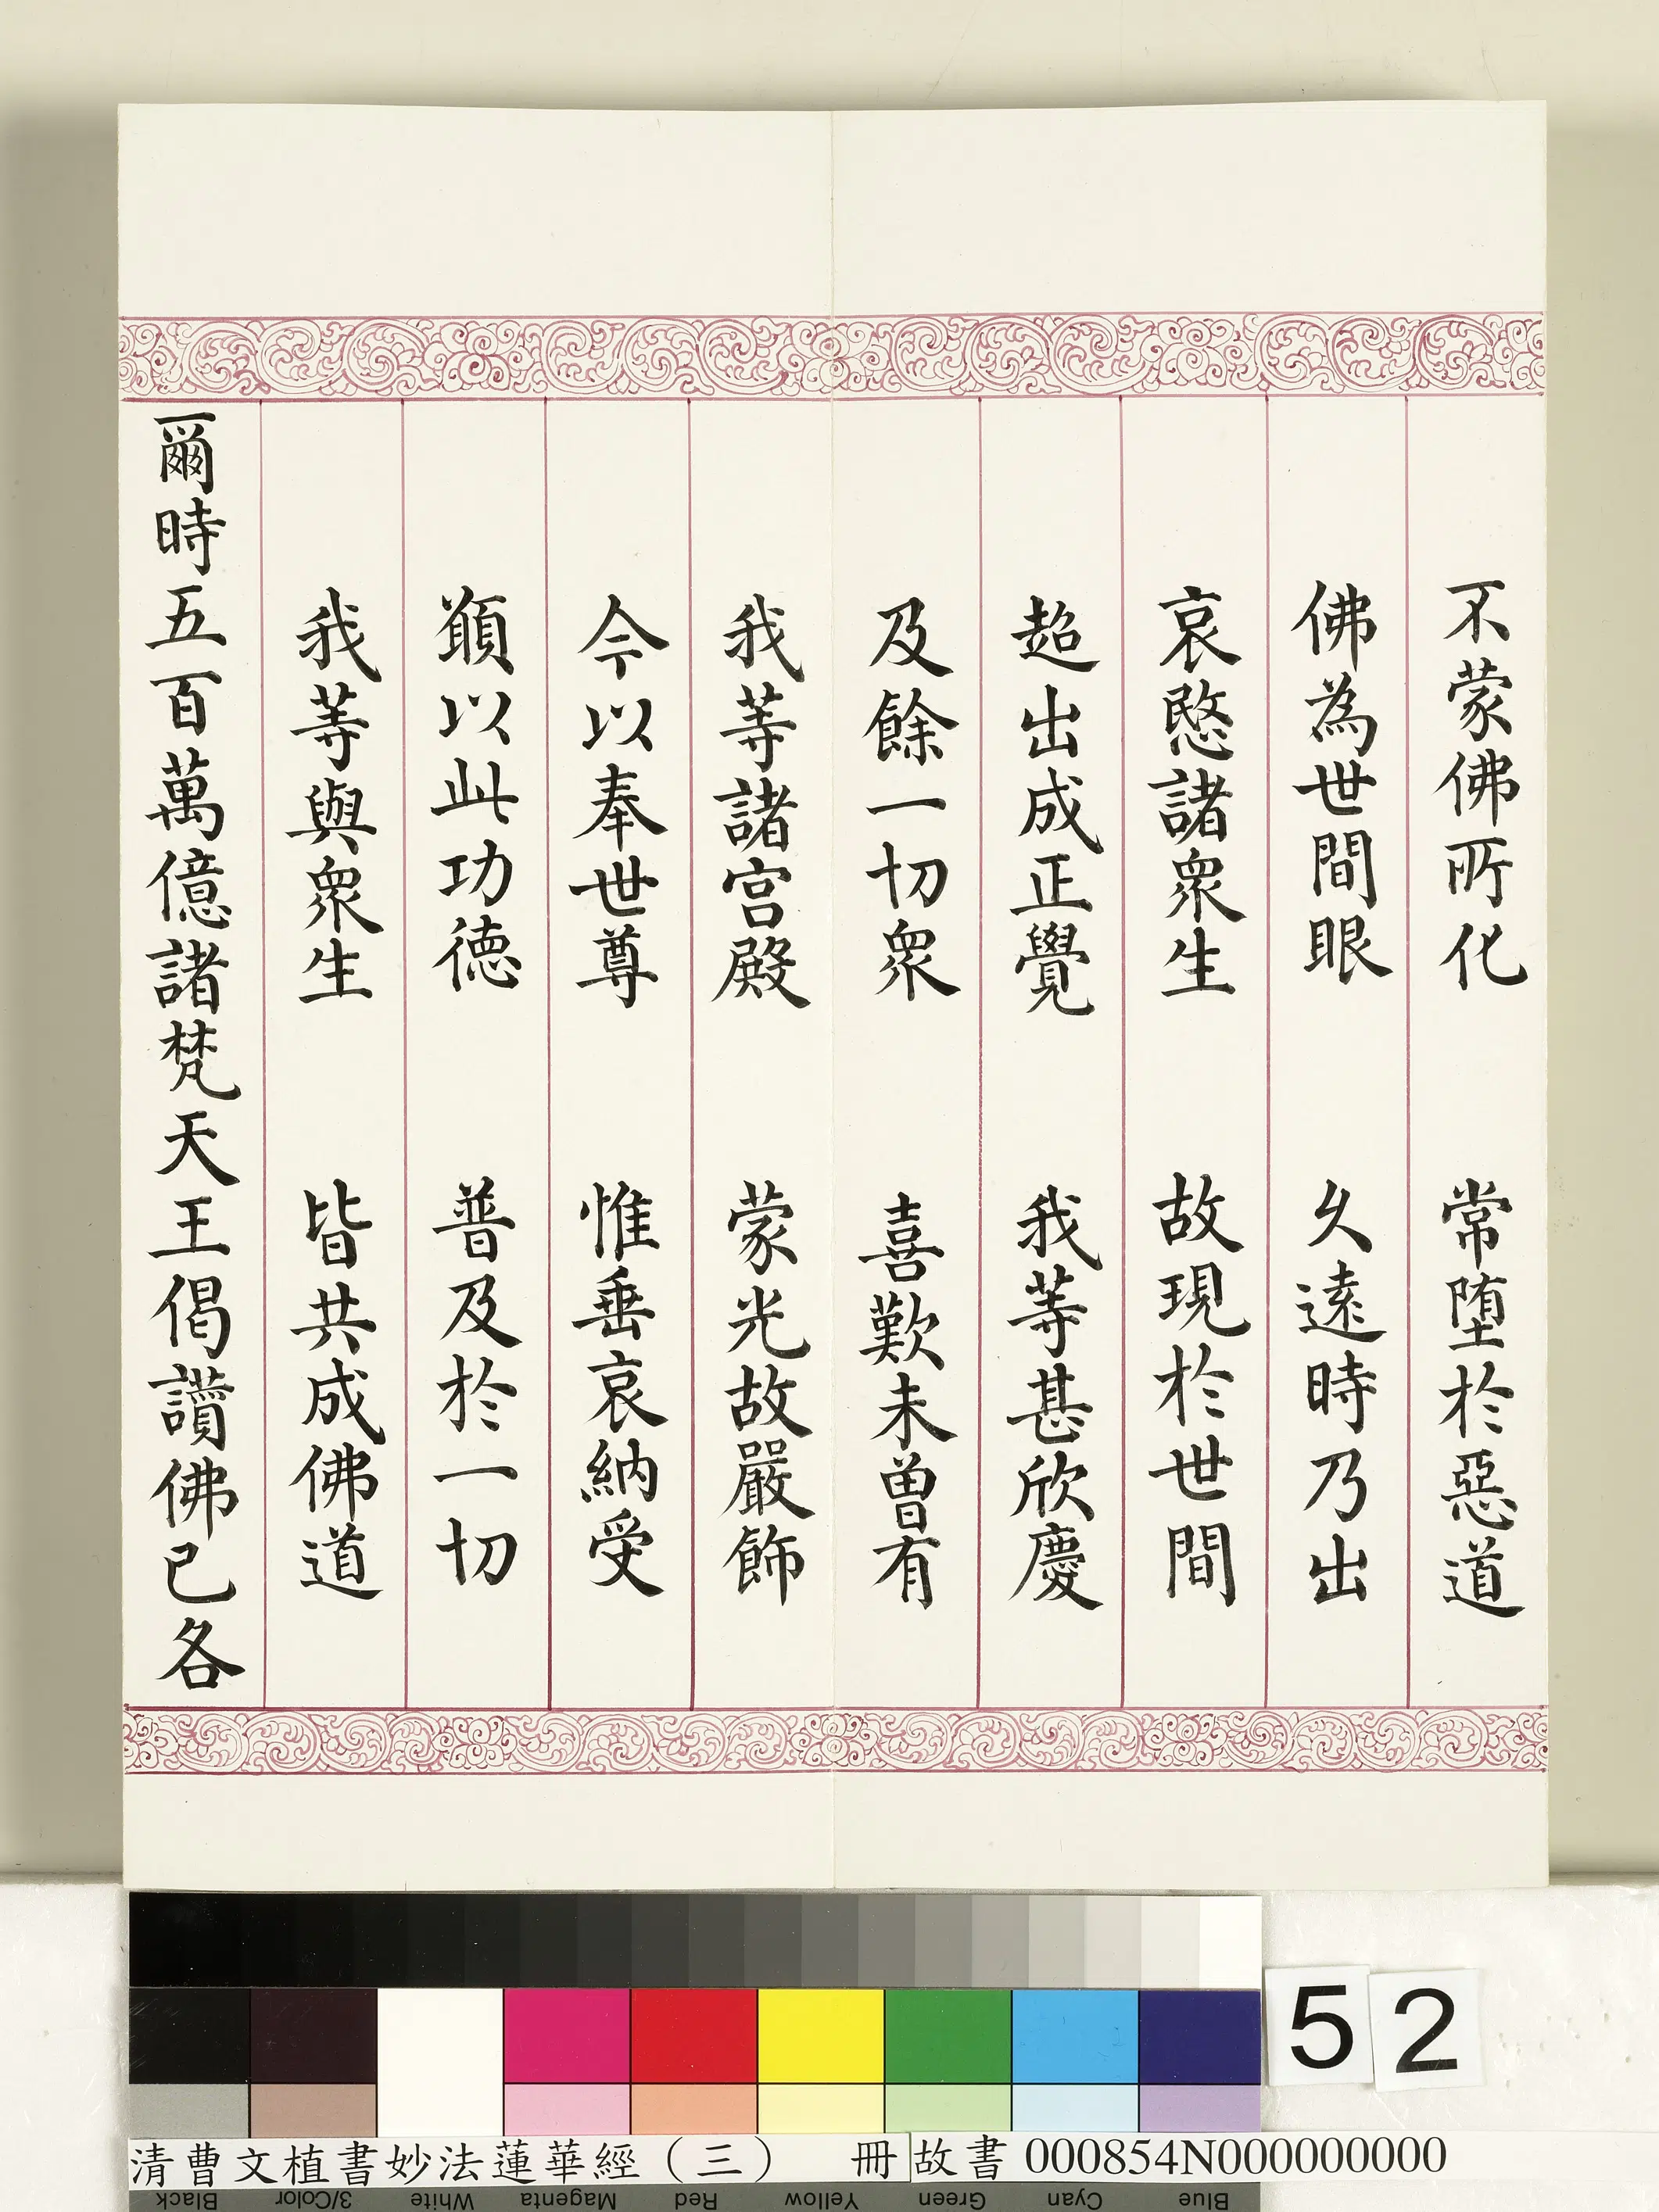 不蒙佛所化　常墮於惡道
佛為世間眼　久遠時乃出
哀愍諸衆生　故現於世間
超出成正覺　我等甚欣慶
及餘一切衆　喜歎未曾有
我等諸宮殿　蒙光故嚴飾
今以奉世尊　惟垂哀納受
願以此功德　普及於一切
我等與衆生　皆共成佛道
爾時五百萬億諸梵天王偈讚佛已各
52
清曹文植書妙法蓮華經（三）　冊 故書 000854N000000000
Black 3/Color White Magenta Red Yellow Green Cyan Blue